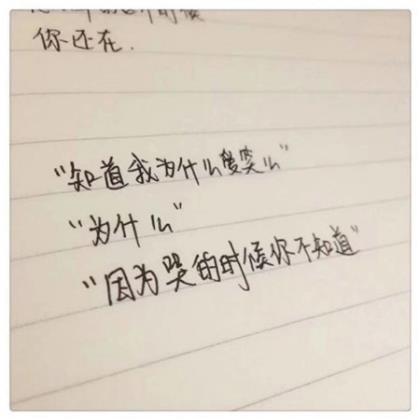 时候
你还在.
"知道我为什么爱笑么"
"为什么"
"因为哭的时候你不知道"